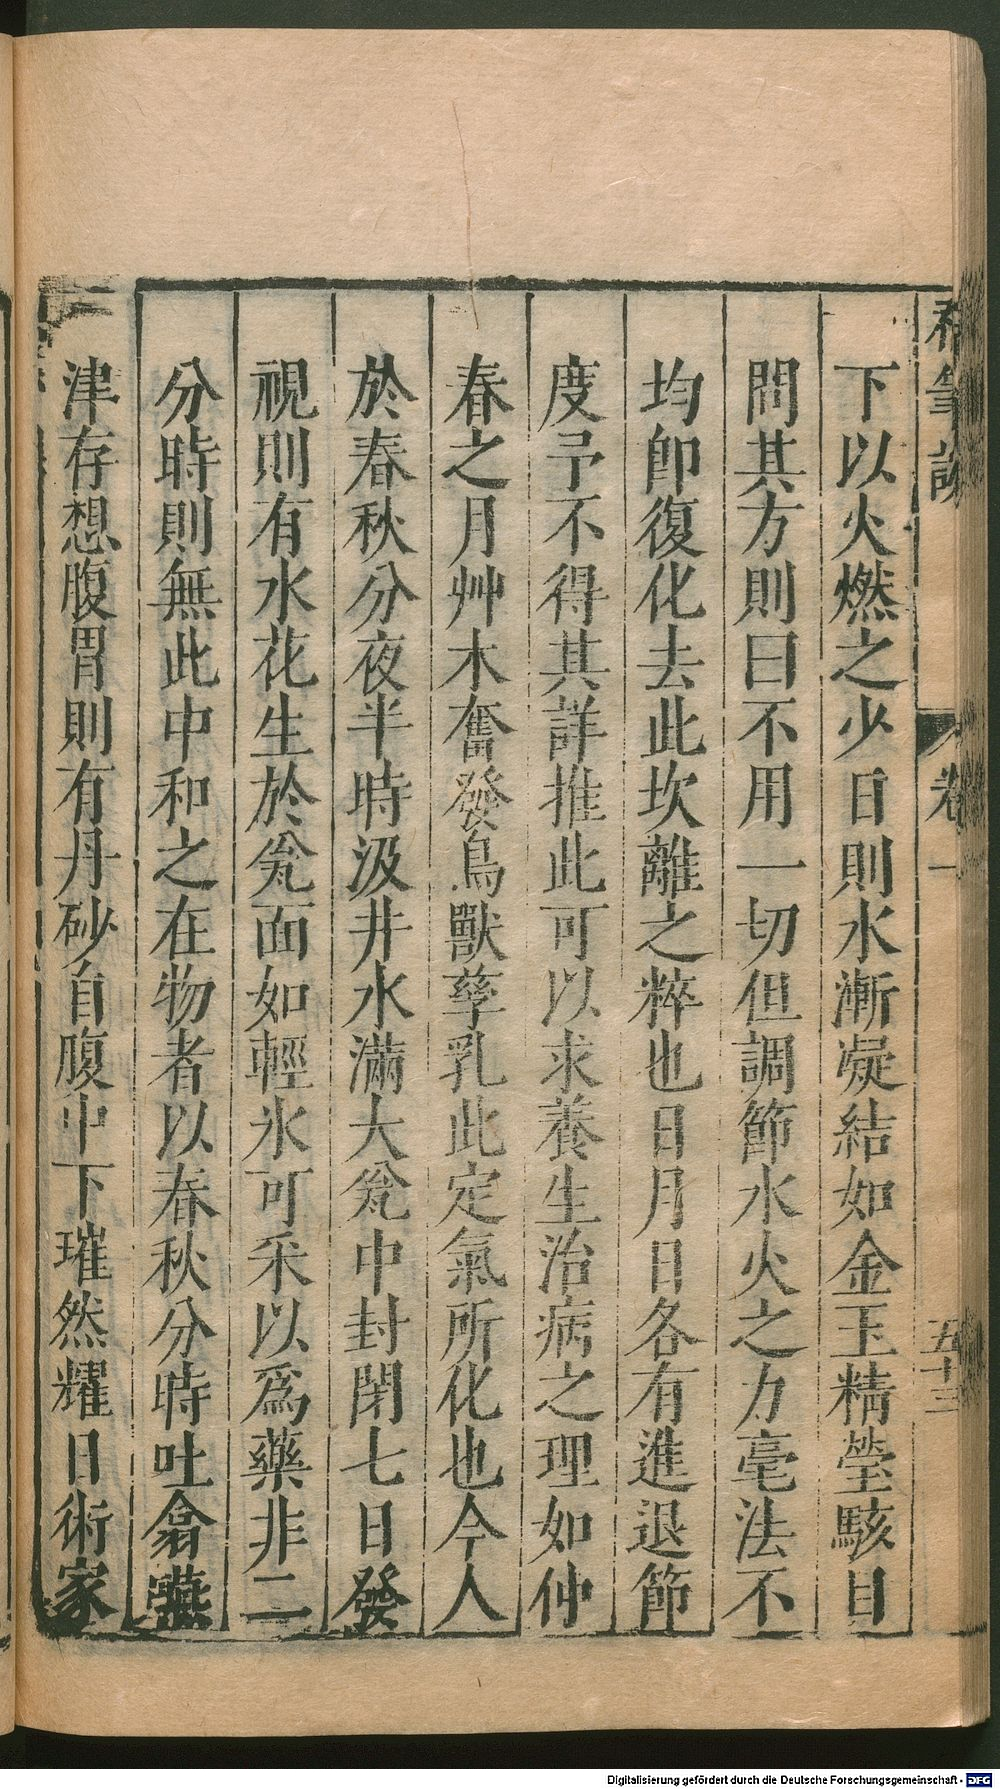 下以火燃之少日則水漸凝結如金玉精瑩駭目
問其方則曰不用一切但調節水火之力毫法不
均卽復化去此坎離之粹也日月日各有進退節
度予不得其詳推此可以求養生治病之理如仲
春之月艸木奮發鳥獸孳乳此定氣所化也今人
於春秋分夜半時汲井水滿大瓮中封閉七日發
視則有水花生於瓮面如輕氷可采以爲藥非二
分時則無此中和之在物者以春秋分時吐翕嚥
津存想腹胃則有丹砂自腹中下璀然耀日術家
卷一
五十三
Digitalisierung gefördert durch die Deutsche Forschungsgemeinschaft - DFG